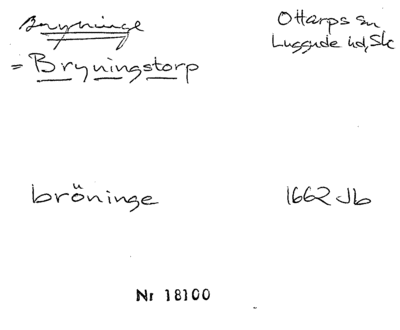 Bryninge
Ottarps sn
Luggude hd, Sk
= Bryningstorp
bröninge
1662 Jb
Nr 18100